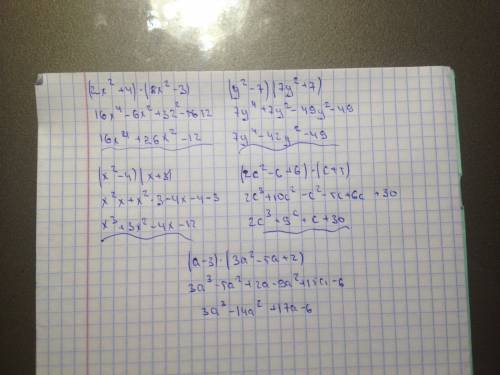 (2x² + 4) · (8x² - 3)
16x⁴ - 6x² + 32² - 12
16x⁴ + 26x² - 12
(y² - 7)(7y² + 7)
7y⁴ + 7y² - 49y² - 49
7y⁴ - 42y² - 49
(x² - 4)(x + 3)
x²x + x² · 3 - 4x - 4 - 3
x³ + 3x² - 4x - 12
(2c² - c + 6) · (c + 5)
2c³ + 10c² - c² - 5c + 6c + 30
2c³ + 9c + c + 30
(a - 3) · (3a² - 5a + 2)
3a³ - 5a² + 2a - 9a² + 15a - 6
3a³ - 14a² + 17a - 6